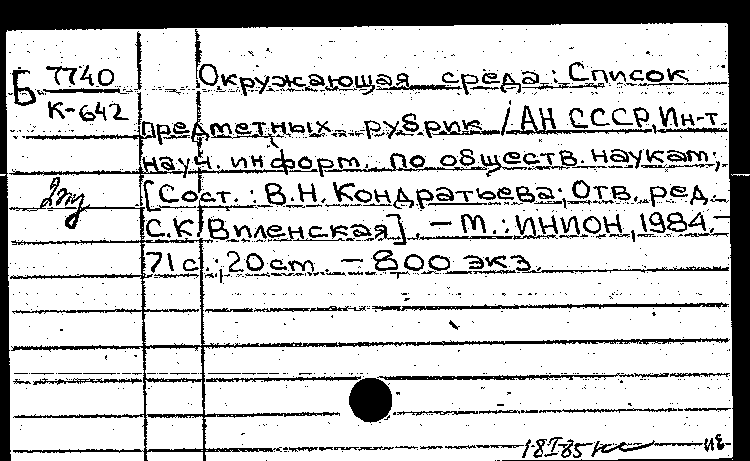 Б 7740
К-642
Окружающая среда: Список
предметных рубрик / АН СССР, Ин-т
науч. информ. по обществ. наукам;
[Сост.: В.Н. Кондратьева; Отв. ред.
С.К. Виленская]. – М.: ИНИОН, 1984. –
71 с.; 20 см. – 800 экз.
18 I 85